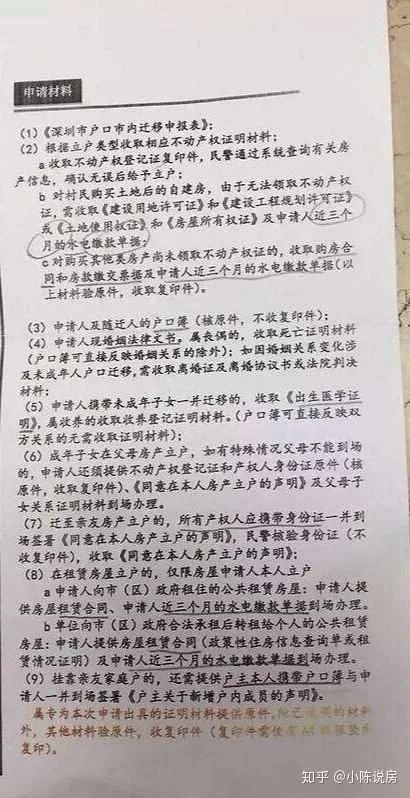 申请材料
(1)《深圳市户口市内迁移申报表》;
(2) 根据立户类型收取相应不动产权证明材料:
a 收取不动产权登记证复印件,民警通过系统查询有关房
产信息,确认无误后给予立户;
b 对村民购买土地后的自建房,由于无法领取不动产权
证,需收取《建设用地许可证》和《建设工程规划许可证》
或《土地使用权证》和《房屋所有权证》及申请人近三个
月的水电缴款单据;
c 对购买其他类房产尚未领取不动产权证的,收取购房合
同和房款缴交票据及申请人近三个月的水电缴款单据(以
上材料验原件,收取复印件)。
(3) 申请人及随迁人的户口簿(核原件,不收复印件);
(4) 申请人现婚姻法律文书。属丧偶的,收取死亡证明材料
(户口簿可直接反映婚姻关系的除外);如因婚姻关系变化涉
及未成年人户口迁移,需收取离婚证及离婚协议书或法院判决
材料;
(5) 申请人携带未成年子女一并迁移的,收取《出生医学证
明》,属收养的收取收养登记证明材料。(户口簿可直接反映双
方关系的无需收取证明材料);
(6) 成年子女在父母房产立户,如有特殊情况父母不能到场
的,申请人还须提供不动产权登记证和产权人身份证原件(核
原件,收取复印件)、《同意在本人房产立户的声明》及父母子
女关系证明材料到场办理。
(7) 迁至亲友房产立户的,所有产权人应携带身份证一并到
场签署《同意在本人房产立户的声明》,民警核验身份证(不
收复印件),收取《同意在本人房产立户的声明》;
(8) 在租赁房屋立户的,仅限房屋申请人本人立户
a 申请人向市(区)政府租住的公共租赁房屋:申请人提
供房屋租赁合同、申请人近三个月的水电缴款单据到场办理。
b 单位向市(区)政府合法承租后转租给个人的公共租赁
房屋:申请人提供房屋租赁合同(政策性住房信息查询单或租
赁情况证明)及申请人近三个月的水电缴款单据到场办理。
(9) 挂靠亲友家庭户的,还需提供户主本人携带户口簿与申
请人一并到场签署《户主关于新增户内成员的声明》。
属专为本次申请出具的证明材料提供原件,除已说明的材料
外,其他材料验原件,收复印件(复印件需使用
复印)。
知乎 @小陈说房